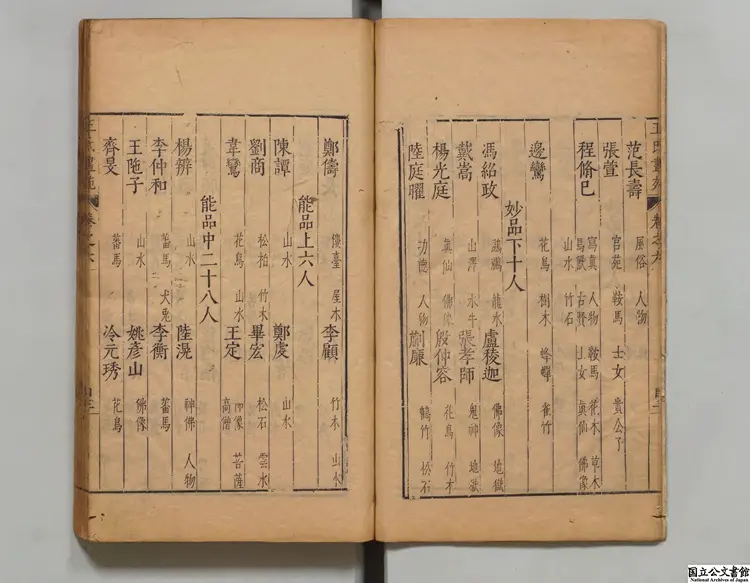 范長壽 風俗 人物
張萱 宮苑 鞍馬 士女 貴公子
程脩己 寫真 人物 鞍馬 花木 草木
馬獸 古賢 士女 真仙 佛像
山水 竹石
邊鸞 花鳥 樹木 蜂蟬 雀竹
妙品下十人
馮紹政 龍水 盧稜迦 佛像 地獄
戴嵩 山澤 水牛 張孝師 鬼神 地獄
楊光庭 真仙 佛像 殷仲容 花鳥 竹木
陸庭曜 功德 人物 蒯廉 鶴竹 松石
鄭儔 樓臺 屋木 李顧 竹木 山水
能品上六人
陳譚 山水 鄭虔 山水
劉商 松柏 竹木 畢宏 松石 雲水
韋鸞 花鳥 山水 王定 高僧 菩薩
能品中二十八人
楊辨 山水 陸滉 神佛 人物
李仲和 蕃馬 犬兎 李衡 蕃馬
王陁子 山水 姚彥山 佛像
齊旻 蕃馬 冷元琇 花鳥
国立公文書館
National Archives of Japan